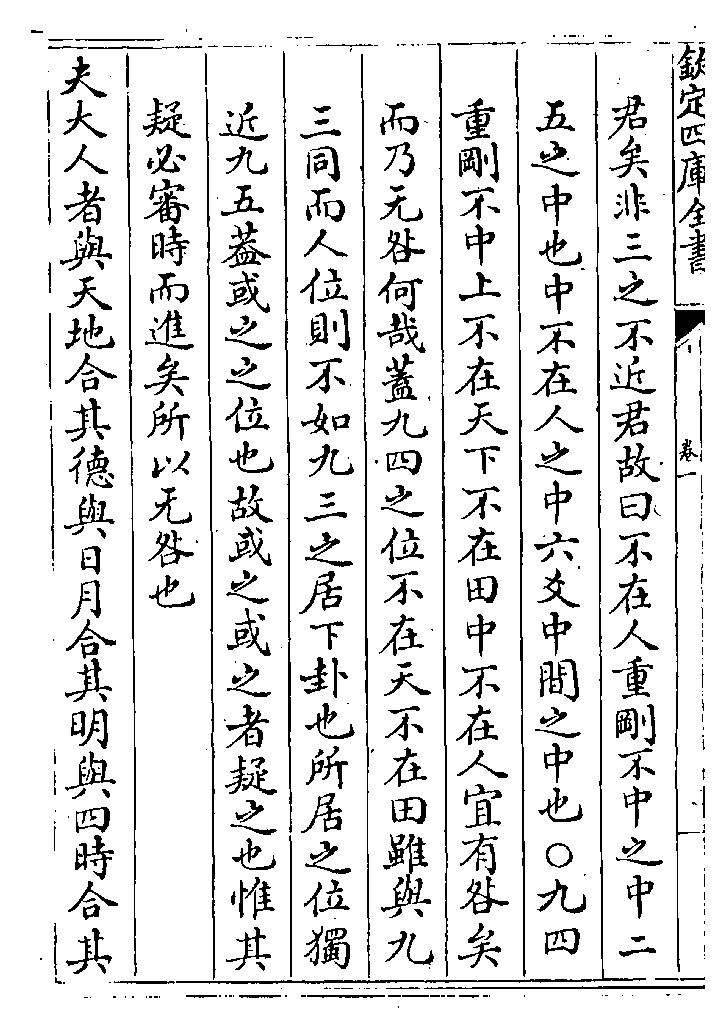 欽定四庫全書
卷一
君矣非三之不近君故曰不在人重剛不中之中二
五之中也中不在人之中六爻中間之中也○九四
重剛不中上不在天下不在田中不在人宜有咎矣
而乃无咎何哉蓋九四之位不在天不在田雖與九
三同而人位則不如九三之居下卦也所居之位獨
近九五蓋或之之位也故或之或之者疑之也惟其
疑必審時而進矣所以无咎也
夫大人者與天地合其德與日月合其明與四時合其